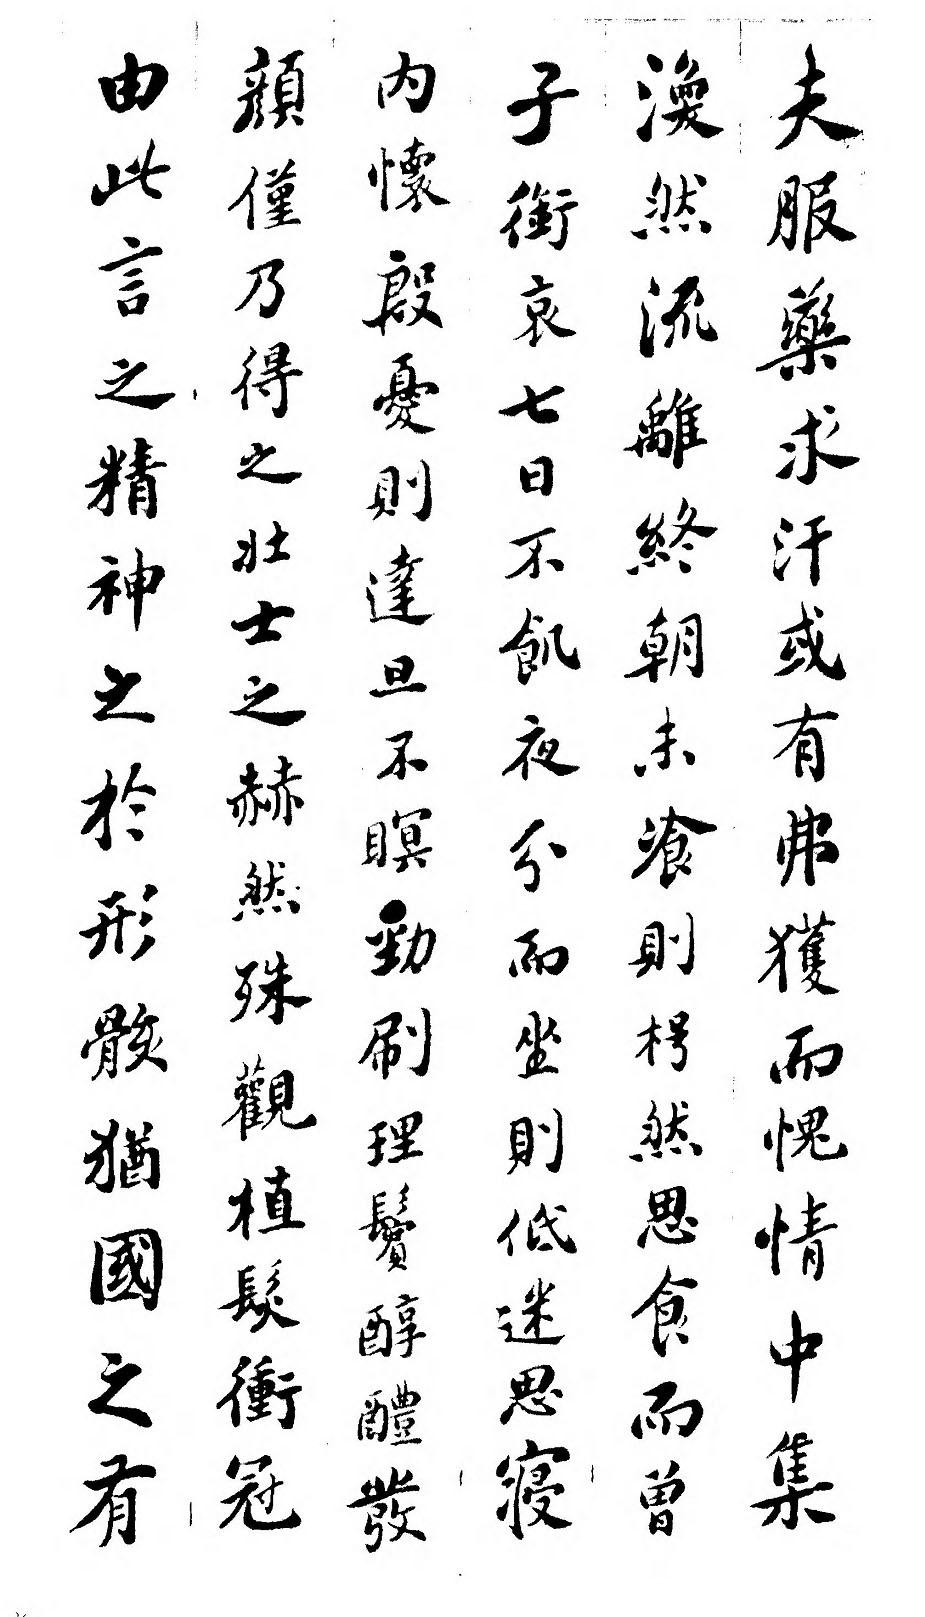 夫服藥求汗或有弗獲而愧情中集
渙然流離終朝未飡則枵然思食而曾
子銜哀七日不飢夜分而坐則低迷思寢
內懷殷憂則達旦不瞑勁刷理鬢醇醴發
顏僅乃得之壯士之赫然殊觀植髮衝冠
由此言之精神之於形骸猶國之有